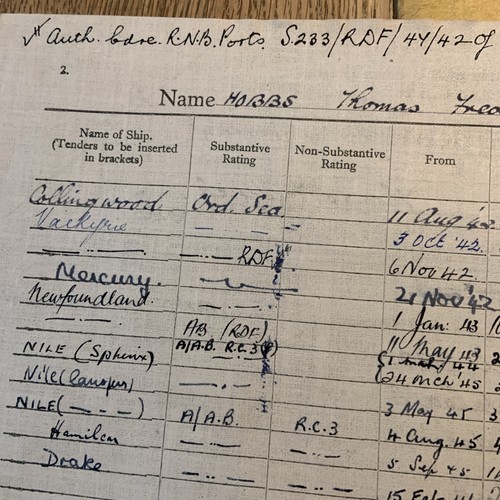 Auth. Cdre. R.N.B. Ports. S.233/RDF/44/42 of
2.
Name HOBBS Thomas Fred
Name of Ship. (Tenders to be inserted in brackets) Substantive Rating Non-Substantive Rating From
Collingwood Ord. Sea 11 Aug '42
Valkyrie — — 3 Oct '42.
— . — . — . — RDF 6 Nov 42
Mercury. 21 Nov '42
Newfoundland. — . — 1 Jan. 43
— . — . AB (RDF) 11 May 43
NILE (Sphinx) A/A.B. R.C.3 44
Nile ( — . — 24 Mch '45
NILE ( — . — ) A/A.B. R.C.3 3 May 45
Hamilcar — . — 4 Aug. 45
Drake — . — — . — 5 Sep 45
15 Feb